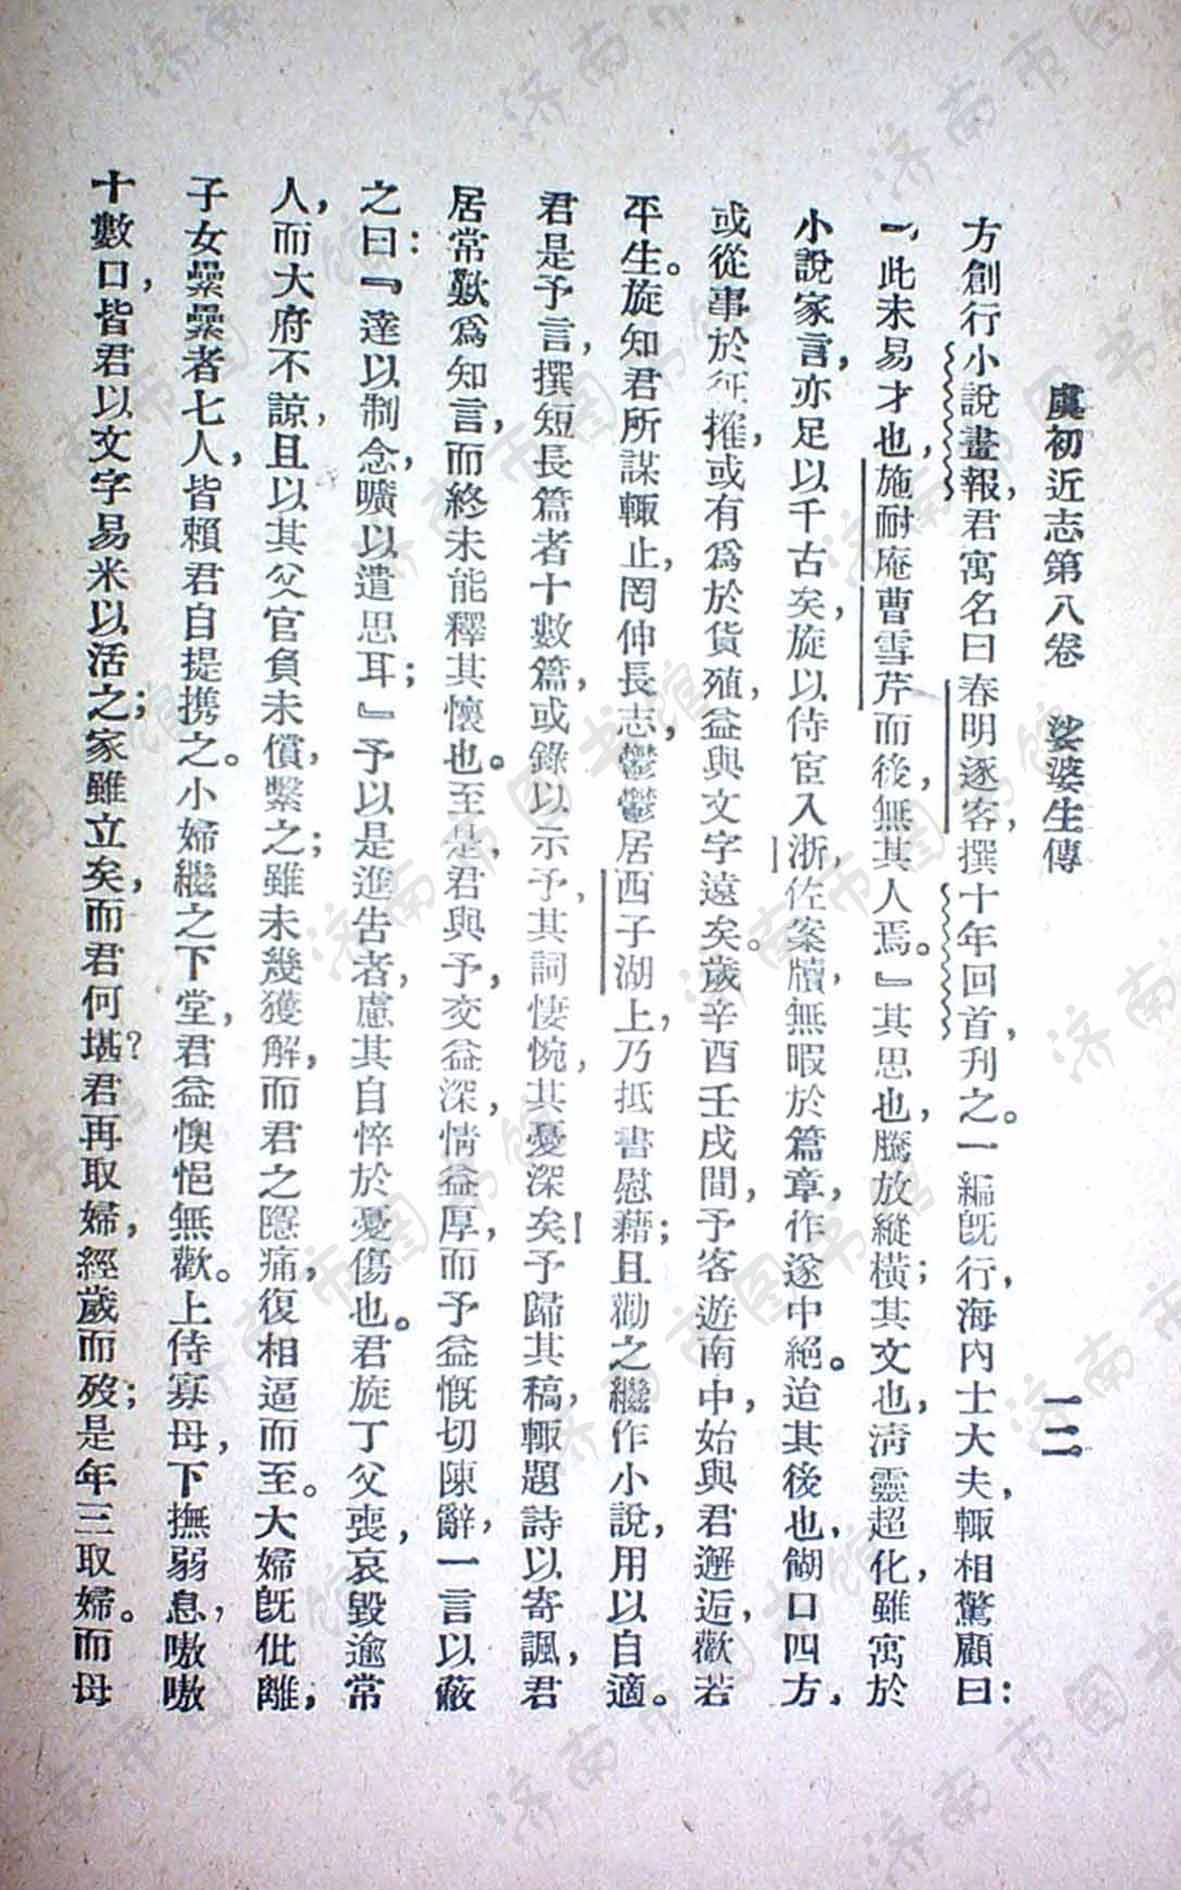 虞初近志第八卷　娑婆生傳　一二
方創行小說畫報，君寓名曰春明逐客，撰十年回首，刊之。一編既行，海內士大夫，輒相驚顧曰：
『此未易才也，施耐庵曹雪芹而後，無其人焉。』其思也，騰放縱橫；其文也，淸靈超化，雖寓於
小說家言，亦足以千古矣，旋以侍宦入浙，佐案牘，無暇於篇章，作遂中絕。迨其後也，餬口四方，
或從事於征搉，或有爲於貨殖，益與文字遠矣。歲辛酉壬戌間，予客遊南中，始與君邂逅，歡若
平生。旋知君所謀輒止，罔伸長志，鬱鬱居西子湖上，乃抵書慰藉；且勸之繼作小說，用以自適。
君是予言，撰短長篇者十數篇，或錄以示予，其詞悽惋，其憂深矣！予歸其稿，輒題詩以寄諷，君
居常歎爲知言，而終未能釋其懷也。至是，君與予，交益深，情益厚，而予益慨切陳辭，一言以蔽
之曰：『達以制念，曠以遣思耳；』予以是進告者，慮其自悴於憂傷也。君旋丁父喪，哀毀逾常
人，而大府不諒，且以其父官負未償，繫之；雖未幾獲解，而君之隱痛，復相逼而至。大婦既仳離，
子女纍纍者七人，皆賴君自提携之。小婦繼之下堂，君益懊悒無歡。上侍寡母，下撫弱息，嗷嗷
十數口，皆君以文字易米以活之；家雖立矣，而君何堪？君再取婦，經歲而歿；是年三取婦。而母